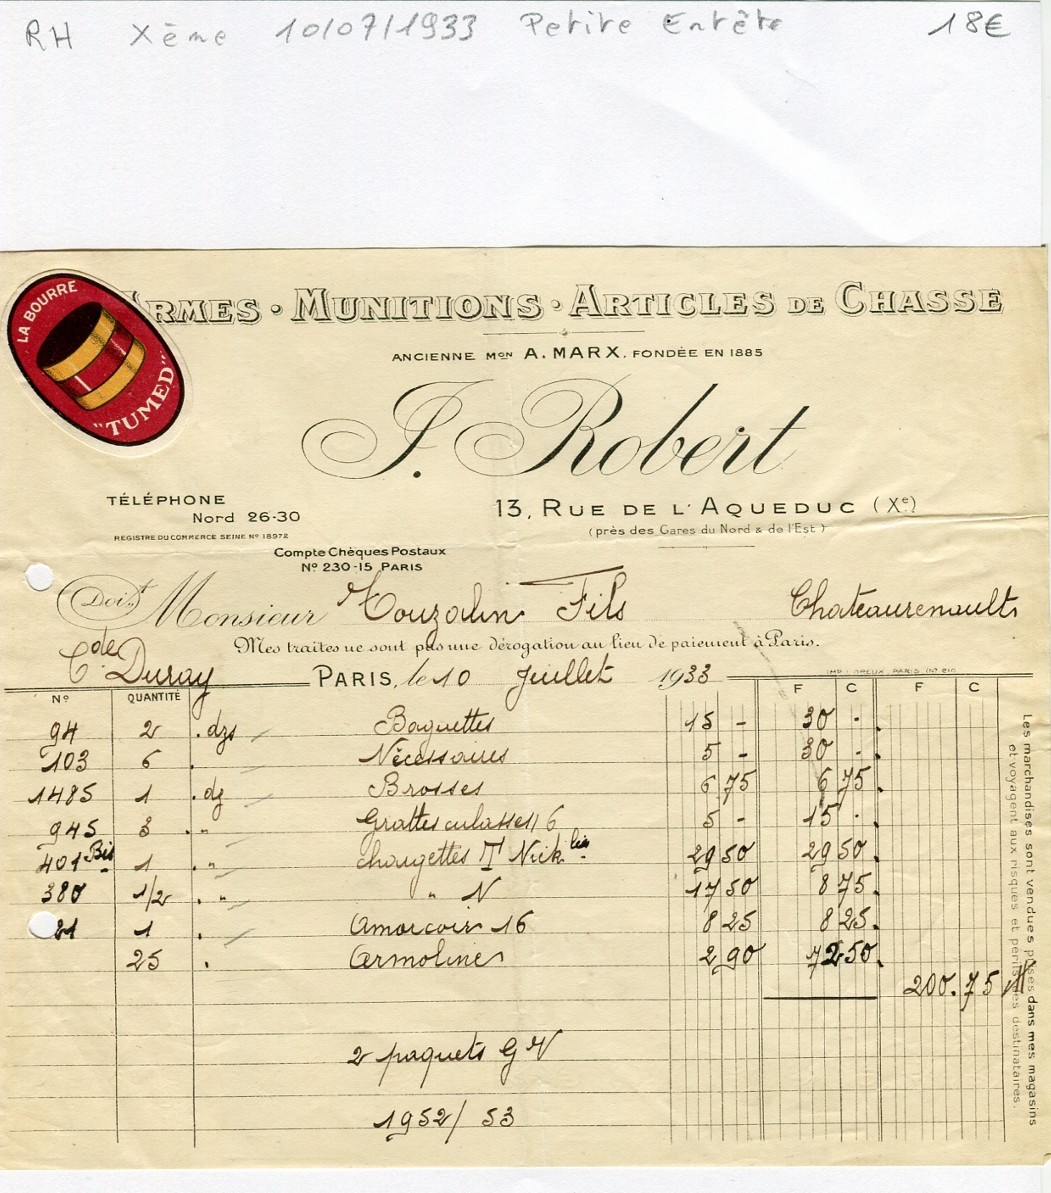 RH Xème 10/07/1933 Petite Entête 18€
LA BOURRE
"TUMED"
ARMES · MUNITIONS · ARTICLES DE CHASSE
ANCIENNE Mon A. MARX. FONDÉE EN 1885
J. Robert
TÉLÉPHONE
Nord 26-30
REGISTRE DU COMMERCE SEINE No 18972
13, RUE DE L'AQUEDUC (Xe)
(près des Gares du Nord & de l'Est)
Compte Chèques Postaux
No 230-15 PARIS
Doit Monsieur Touzalin Fils Chateaurenault
Mes traites ne sont pas une dérogation au lieu de paiement à Paris.
Cde Duray
PARIS, le 10 Juillet 1933
No QUANTITÉ F C F C
94 2 dzs Baguettes 15 - 30 -
103 6 Nécessaires 5 - 30 -
1485 1 dz Brosses 6 75 6 75
945 3 " Grattes culasse 16 5 - 15 -
401 Bis 1 " chargettes T Nick 29 50 29 50
380 1/2 " " N 17 50 8 75
21 1 Amorcoir 16 8 25 8 25
25 Armoline 2 90 72 50
200.75
2 paquets GV
1952/53
Les marchandises sont vendues prises dans mes magasins
et voyagent aux risques et périls des destinataires.